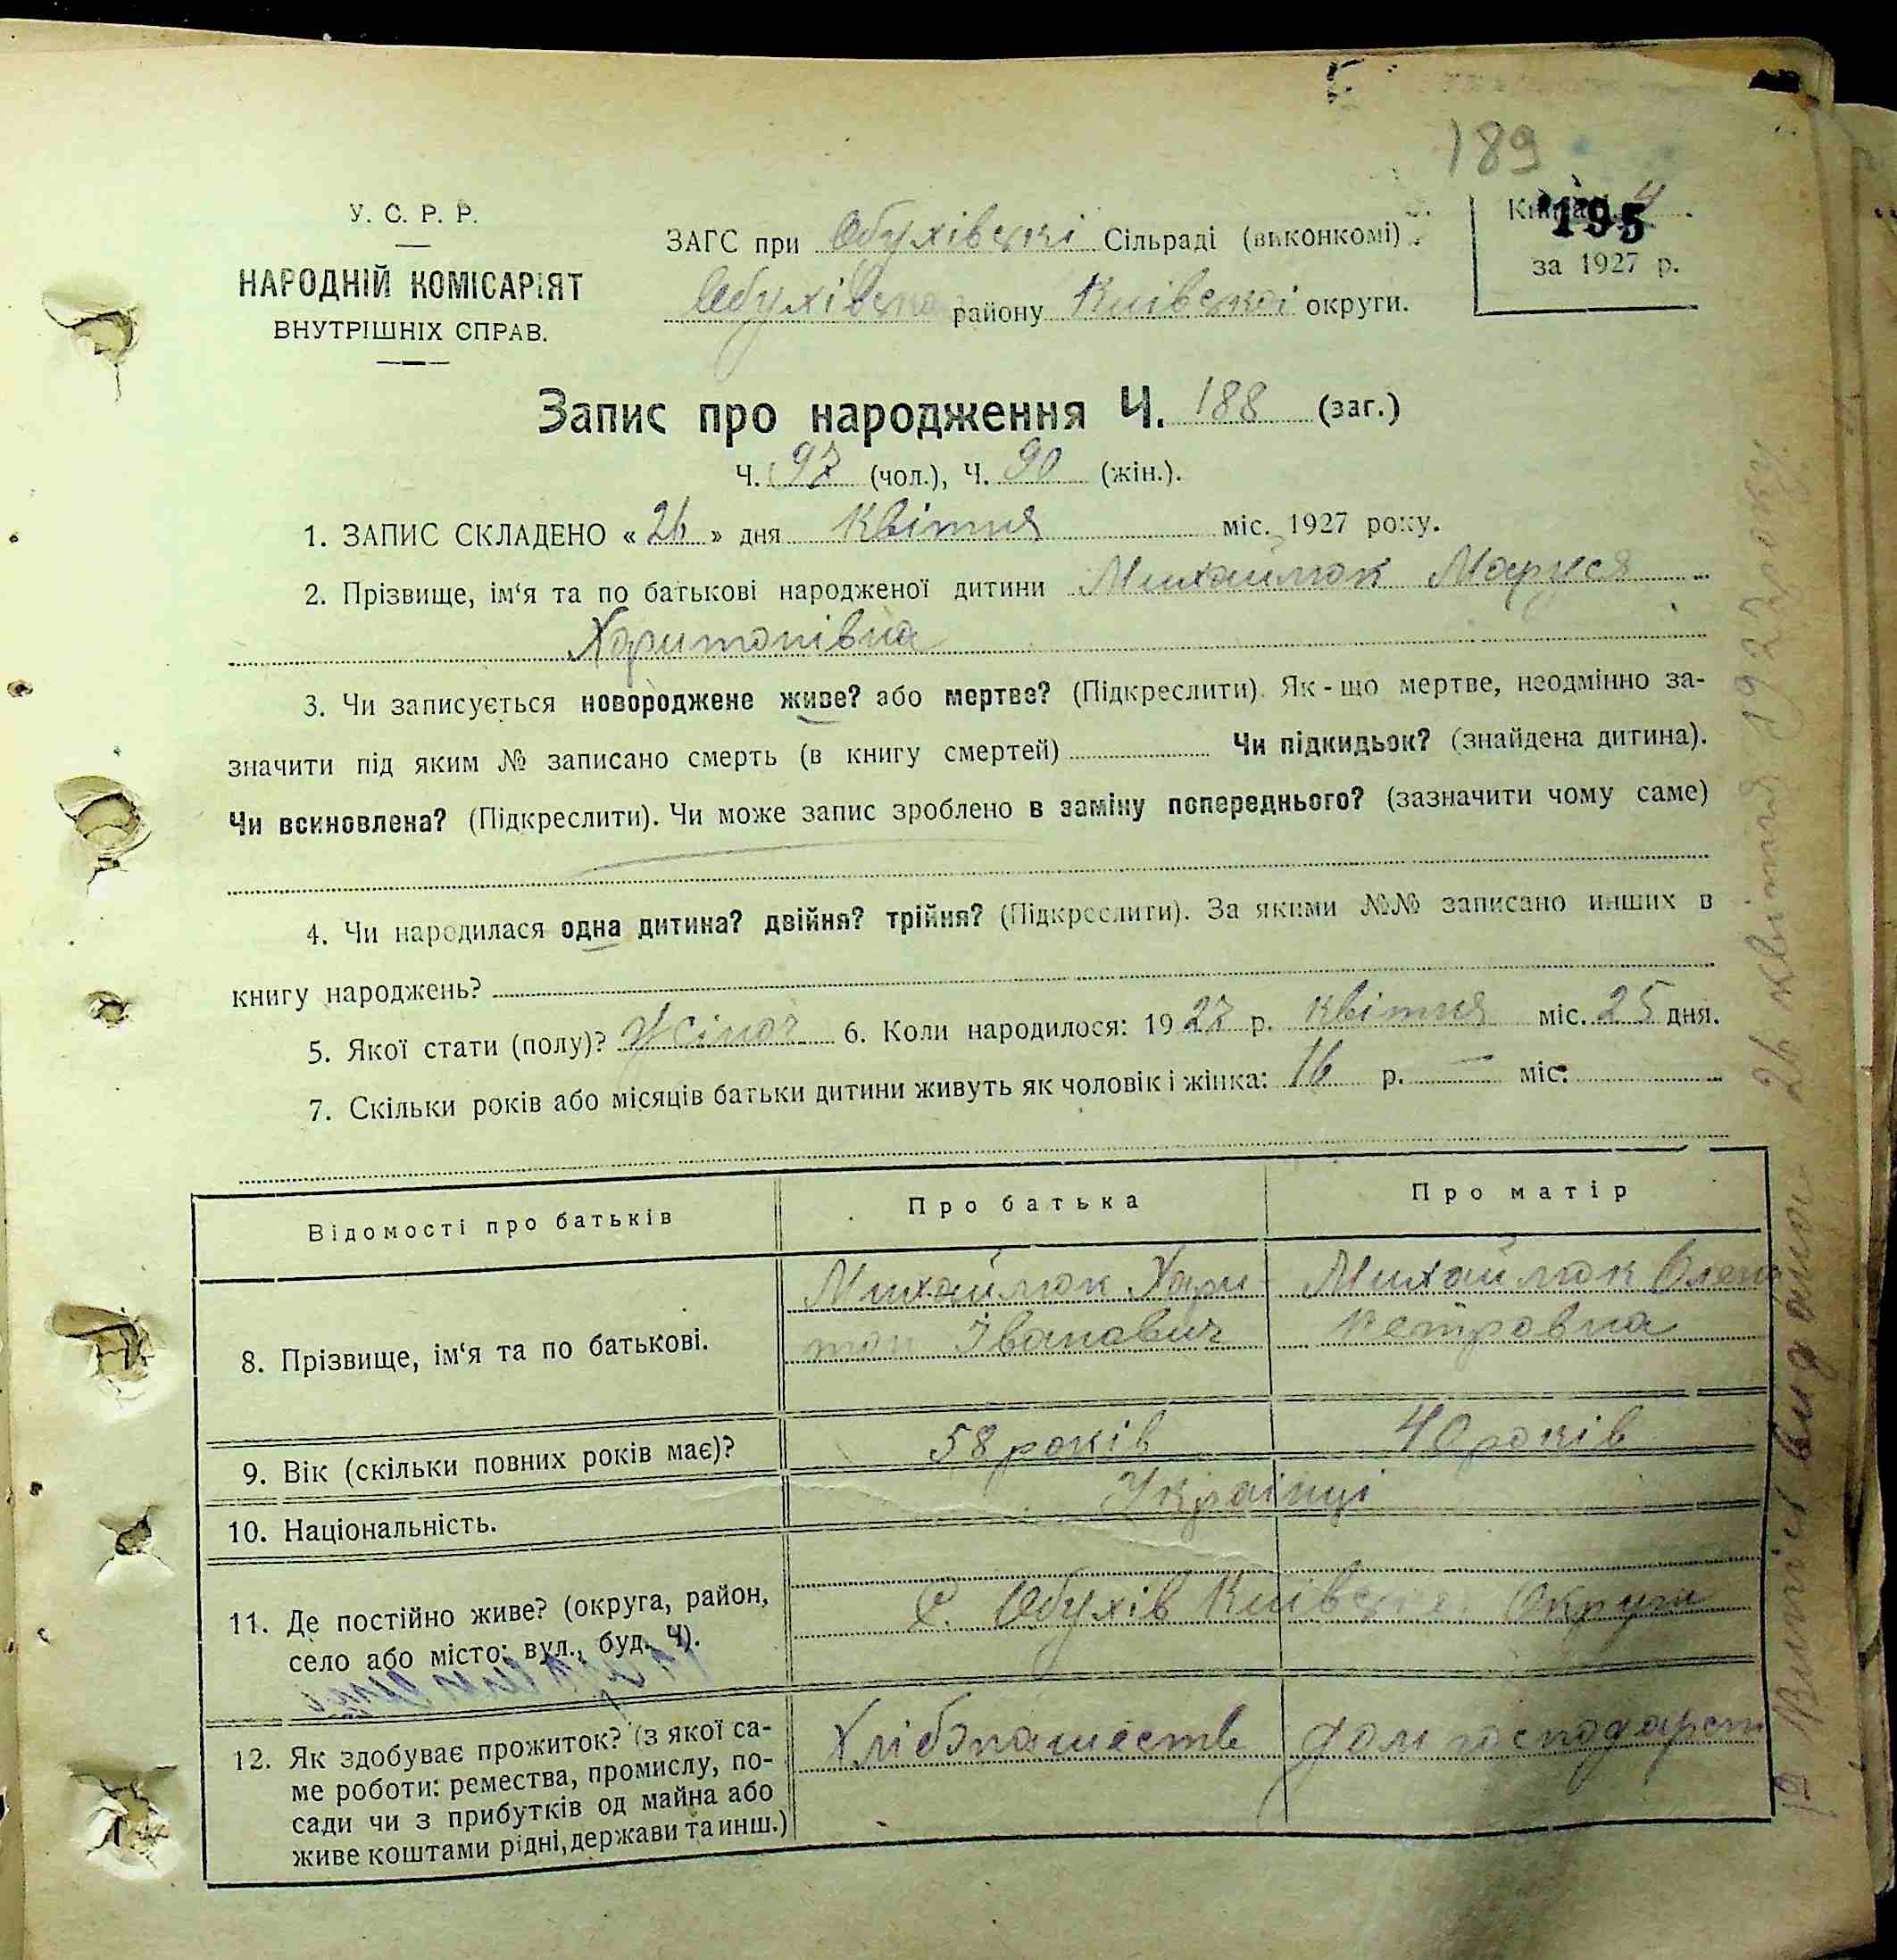 189
У. С. Р. Р.
НАРОДНІЙ КОМІСАРІЯТ
ВНУТРІШНІХ СПРАВ.
ЗАГС при Обухівські Сільраді (виконкомі)
Обухівсько району Київської округи.
195
за 1927 р.
Запис про народження Ч. 188 (заг.)
Ч. 97 (чол.), Ч. 90 (жін.).
1. ЗАПИС СКЛАДЕНО « 26 » дня Квітня міс. 1927 року.
2. Прізвище, ім‘я та по батькові народженої дитини Михайлюк Маруся
Харитонівна
3. Чи записується новороджене живе? або мертве? (Підкреслити). Як-що мертве, неодмінно за-
значити під яким № записано смерть (в книгу смертей) Чи підкидьок? (знайдена дитина).
Чи всиновлена? (Підкреслити). Чи може запис зроблено в заміну попереднього? (зазначити чому саме)
4. Чи народилася одна дитина? двійня? трійня? (Підкреслити). За якими №№ записано инших в
книгу народжень?
5. Якої стати (полу)? Жіноч 6. Коли народилося: 1927 р. квітня міс. 25 дня.
7. Скільки років або місяців батьки дитини живуть як чоловік і жінка: 16 р. — міс.
Відомості про батьків Про батька Про матір
8. Прізвище, ім‘я та по батькові.
Михайлюк Хари
тон Іванович
Михайлюк Олена
Петровна
9. Вік (скільки повних років має)? 58 років 40 років
10. Національність. Українці
11. Де постійно живе? (округа, район,
село або місто: вул., буд. Ч).
С. Обухів Київсько Округи
12. Як здобуває прожиток? (з якої са-
ме роботи: ремества, промислу, по-
сади чи з прибутків од майна або
живе коштами рідні, держави та инш.)
Хлібопашеств
дом господарст
Випис видано 26 квітня 1927 року.